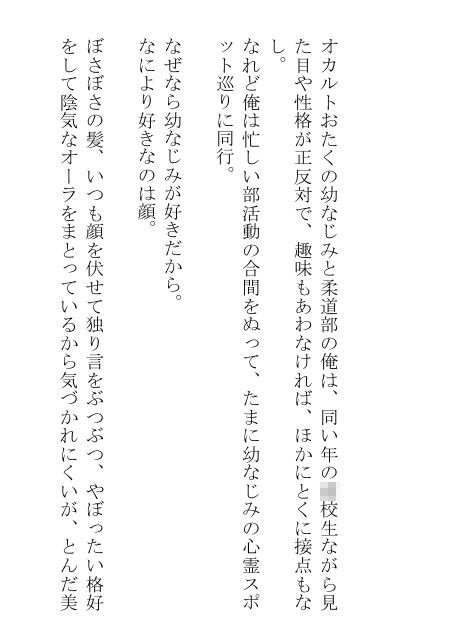 オカルトおたくの幼なじみと柔道部の俺は、同い年の校生ながら見
た目や性格が正反対で、趣味もあわなければ、ほかにとくに接点もな
し。
なれど俺は忙しい部活動の合間をぬって、たまに幼なじみの心霊スポ
ット巡りに同行。
なぜなら幼なじみが好きだから。
なにより好きなのは顔。
ぼさぼさの髪、いつも顔を伏せて独り言をぶつぶつ、やぼったい格好
をして陰気なオーラをまとっているから気づかれにくいが、とんだ美